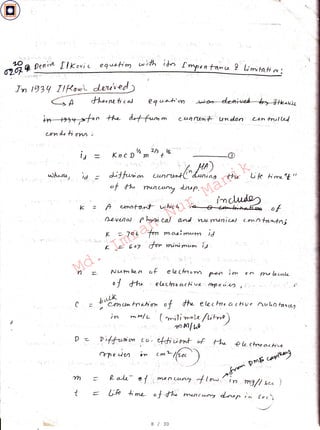 Derive Ilkovic equation with its Importance & Limitation:
In 1934 Ilkovic derived
A theoretical equation was derived by Ilkovic
in 1934 for the diffusion current under controlled
conditions.
id = K n C D^1/2 m^2/3 t^1/6 ①
where, id = diffusion current (µA) during the life time "t"
of the mercury drop.
K = A constant which includes is a combination of
several physical and numerical constants
K = 706 for maximum id
K = 607 for minimum id
n = Number of electrons per ion or molecule
of the electroactive species,
C = bulk concentration of the electroactive substances
in mM/L (milimole/Litre)
mM/L
D = Diffusion co. efficient of the electroactive
species in cm²/sec
m = Rate of mercury flow from DME capillary in mg/sec
t = Life time of the mercury drop in sec.
Md. Imran Nur Manik
8 / 33